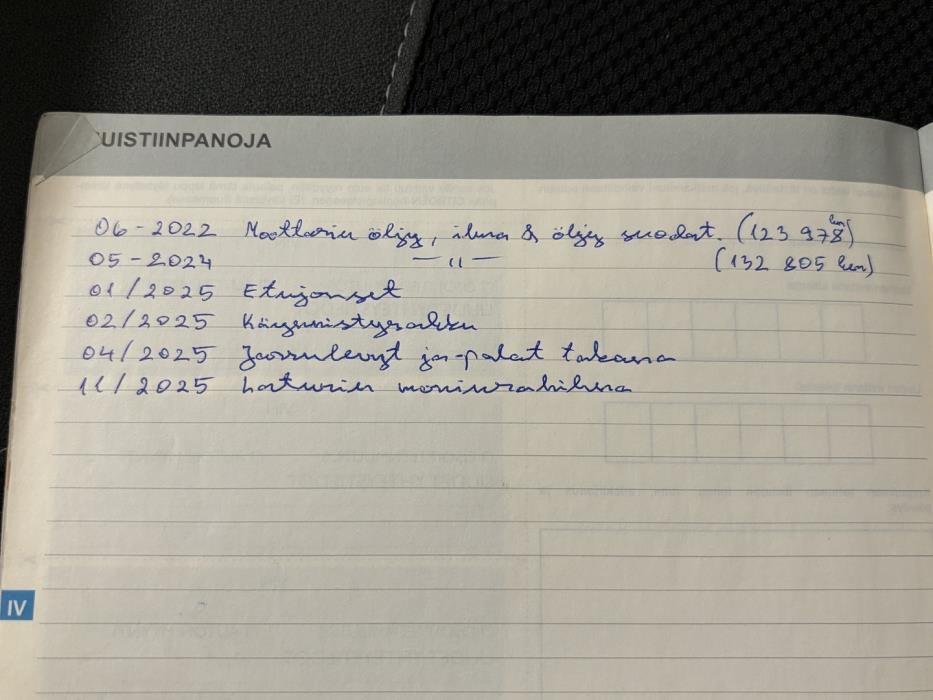 UISTIINPANOJA
06-2022 Moottorin öljy, ilma & öljy suodat. (123 978 km)
05-2024 —"— (132 805 km)
01/2025 Etujouset
02/2025 Käynnistysakku
04/2025 Jarrulevyt ja-palat takana
11/2025 Laturin moniurahihna
IV